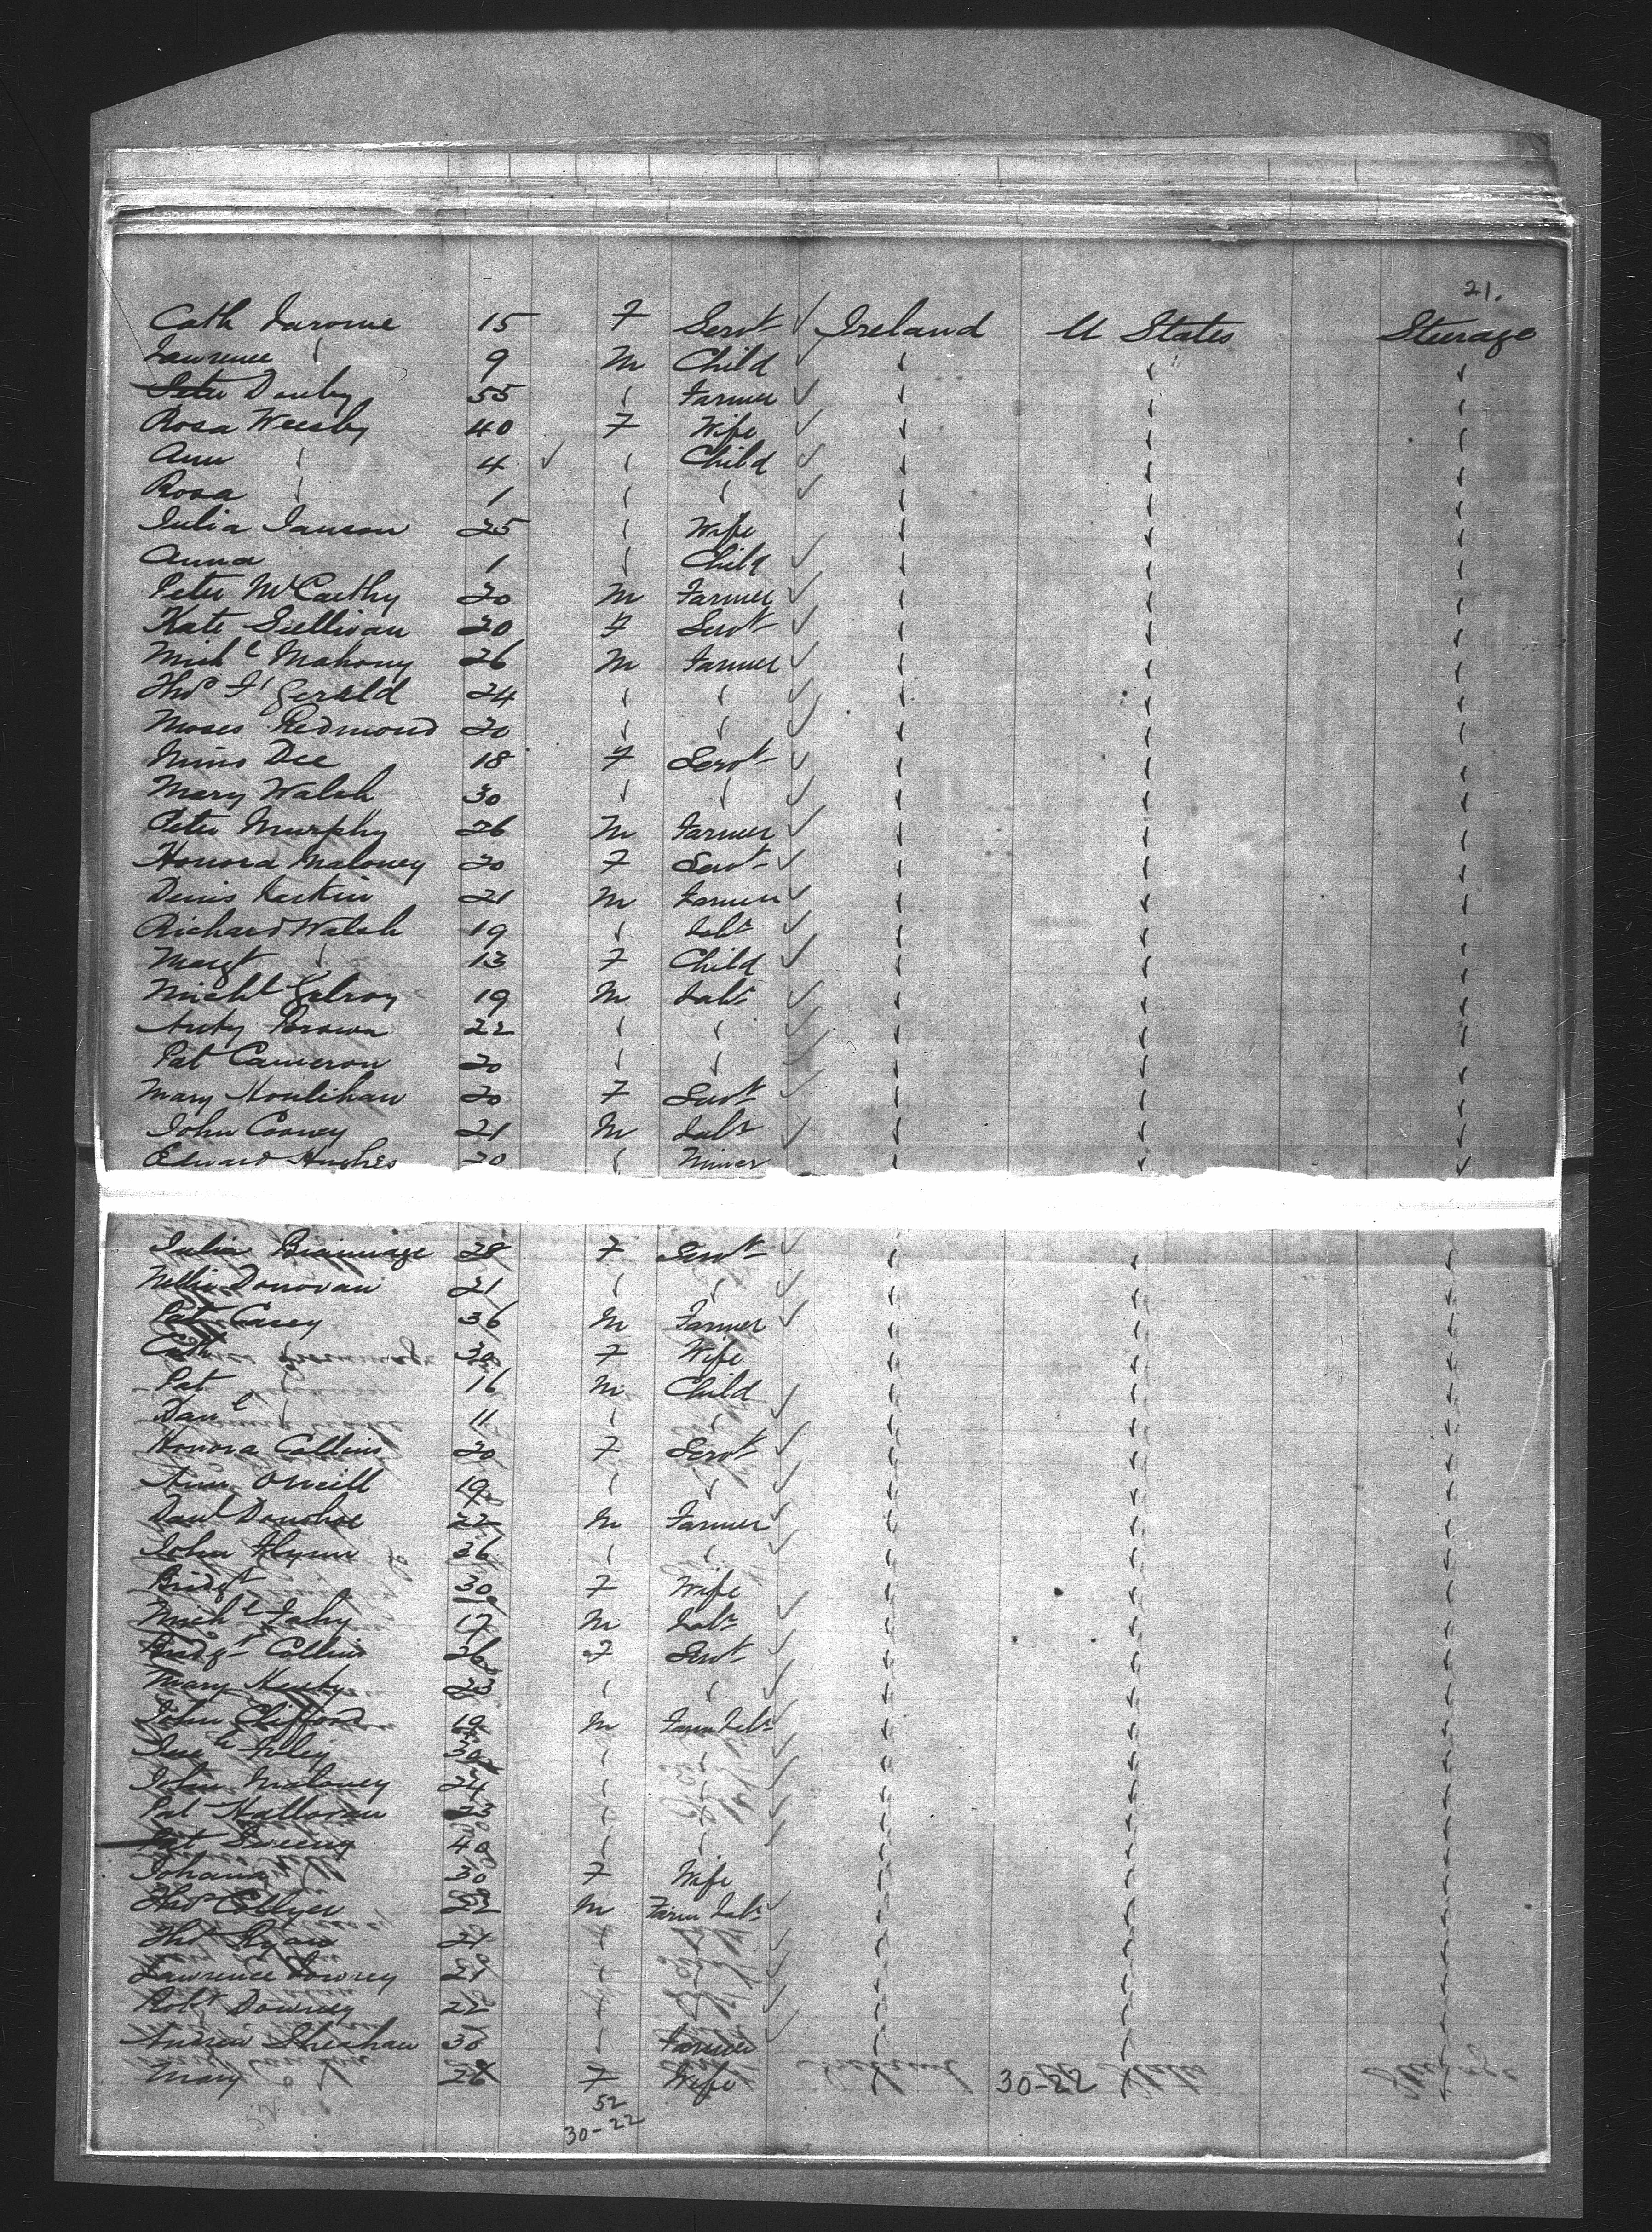 21.
Cath 15 F Servt Ireland U States Steerage
Lawrence 9 M Child
Peter 55 Farmer
Rosa 40 F Wife
Ann 4 Child
Rosa 1
Julia 25 Wife
Anna 1 Child
Peter McCarthy 20 M Farmer
Kate Sullivan 20 F Servt
Michl Mahony 26 M Farmer
Thos Fitzgerald 24
Moses Redmond 20
Dee 18 F Servt
Mary Walsh 30
Peter Murphy 26 M Farmer
Honora Maloney 20 F Servt
Denis Larkin 21 M Farmer
Richard Walsh 19 Labr
Margt 13 F Child
Michl Gilroy 19 M Labr
Brown 22
Pat Cameron 20
Mary Houlihan 20 F Servt
John Cooney 21 M Labr
Edward Hughes 20 Miner
Julia 28 F Servt
Nellie Donovan 21
Pat Casey 36 M Farmer
Cath 30 F Wife
Pat 16 M Child
Danl 11
Honora Collins 20 F Servt
Ann ONeill 19
Danl Donohoe 22 M Farmer
John Flynn 36
Bridgt 30 F Wife
Michl Fahy 17 M Labr
Bridgt Collins 26 F Servt
Mary 23
John Clifford 19 M Farm Labr
Foley 30
John Maloney 24
Pat Halloran 23
Pat Sweeny 40
Johana 30 F Wife
Thos Collyer 22 M Farm Labr
Thos Ryan 21
Lawrence Lowrey 21
Robt Downey 22
Andrew Sheahan 30 Farmer
Mary 28 F Wife 30-22
52
30-22